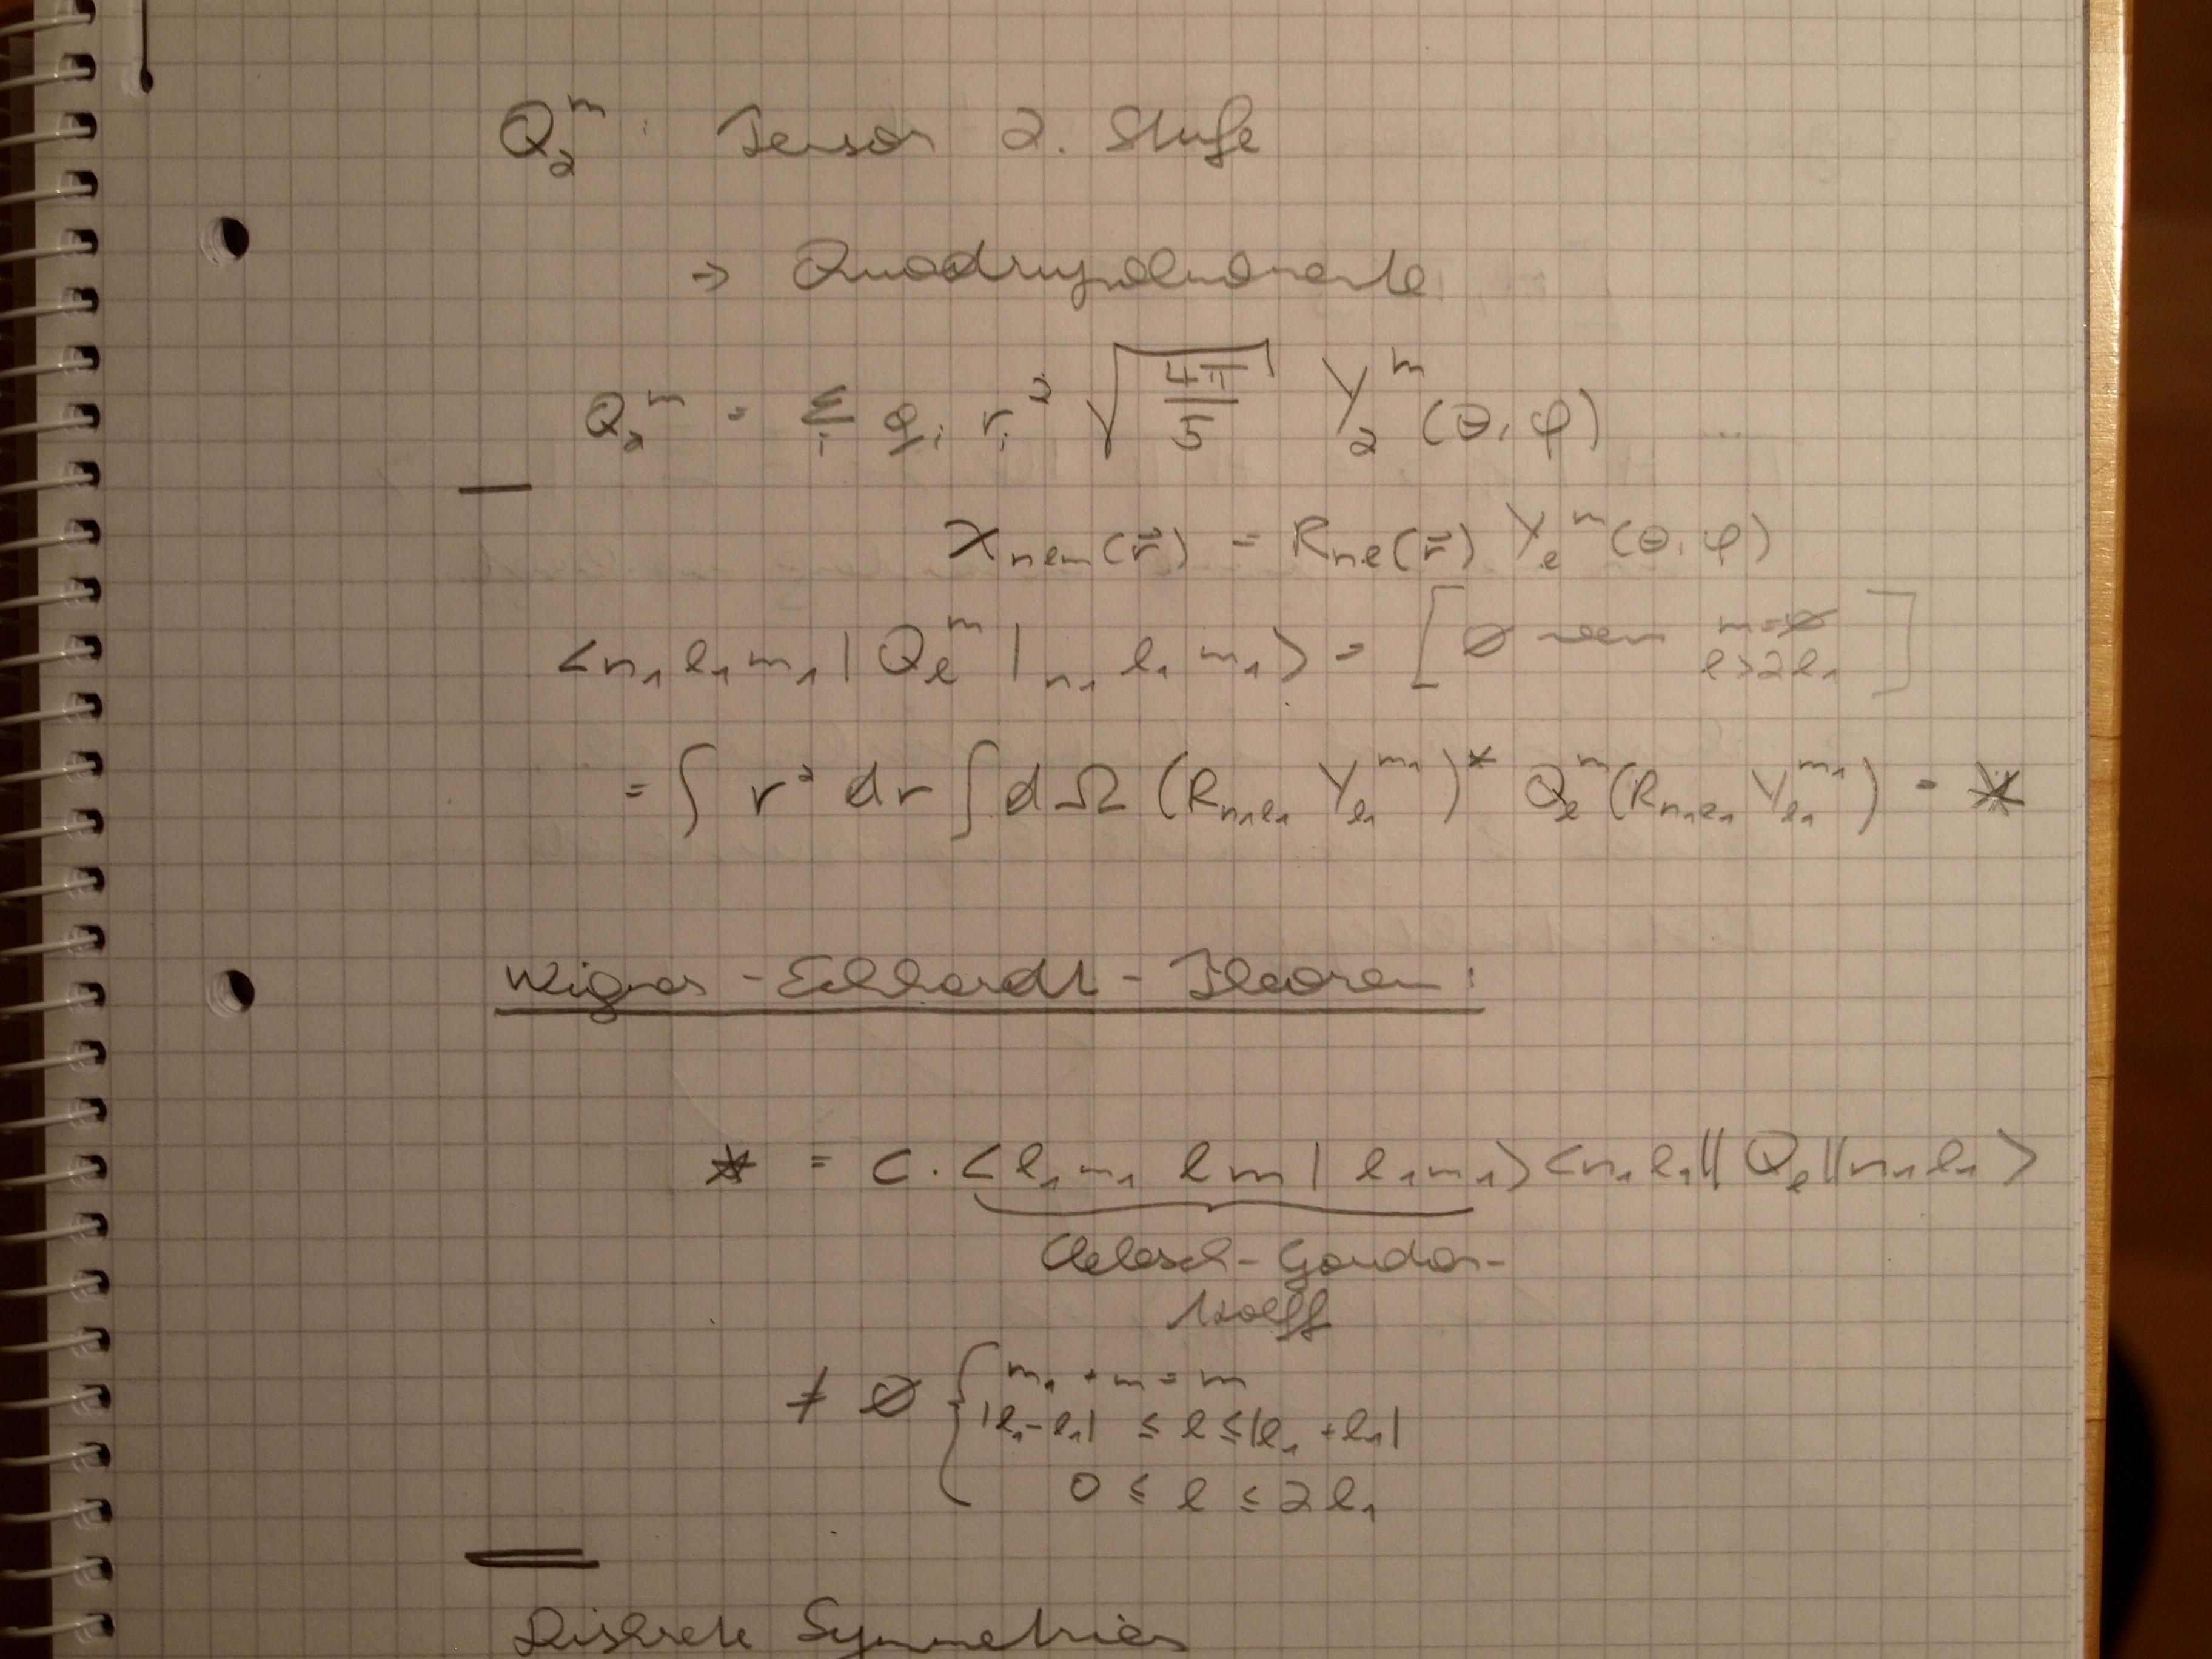 Q₂ᵐ : Tensor 2. Stufe
→ Quadrupolmomente
Q₂ᵐ = Σᵢ qᵢ rᵢ² √(4π/5) Y₂ᵐ(θ, φ)
χₙₗₘ(r⃗) = Rₙₗ(r⃗) Yₗᵐ(θ, φ)
<n₁ l₁ m₁ | Qₗᵐ | n₁ l₁ m₁> = [ ∅ wenn m=∅ l>2l₁ ]
= ∫ r² dr ∫ dΩ (R_{n₁l₁} Y_{l₁}^{m₁})* Qₗᵐ (R_{n₁l₁} Y_{l₁}^{m₁}) = *
Wigner-Eckhardt-Theorem:
* = C · <l₁ m₁ l m | l₁ m₁> <n₁ l₁ || Qₗ || n₁ l₁>
Clebsch-Gordon-
Koeff
≠ ∅ { m₁ + m = m
|l₁ - l₁| ≤ l ≤ |l₁ + l₁|
0 ≤ l ≤ 2l₁
Diskrete Symmetrien